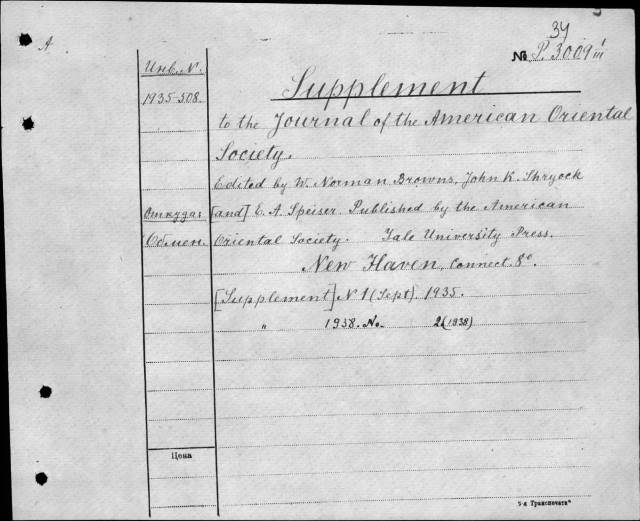 34
A
№ P. 3009 III
Инв. N.
Supplement
1935-508
to the Journal of the American Oriental
Society.
Edited by W. Norman Browns, John K. Shryock
Откуда: [and] E. A. Speiser. Published by the American
Обмен. Oriental Society. Yale University Press.
New Haven, Connect. 8°.
[Supplement] N 1 (Sept). 1935.
" 1938. No. 2 (1938)
Цена
5-я Транспечать"